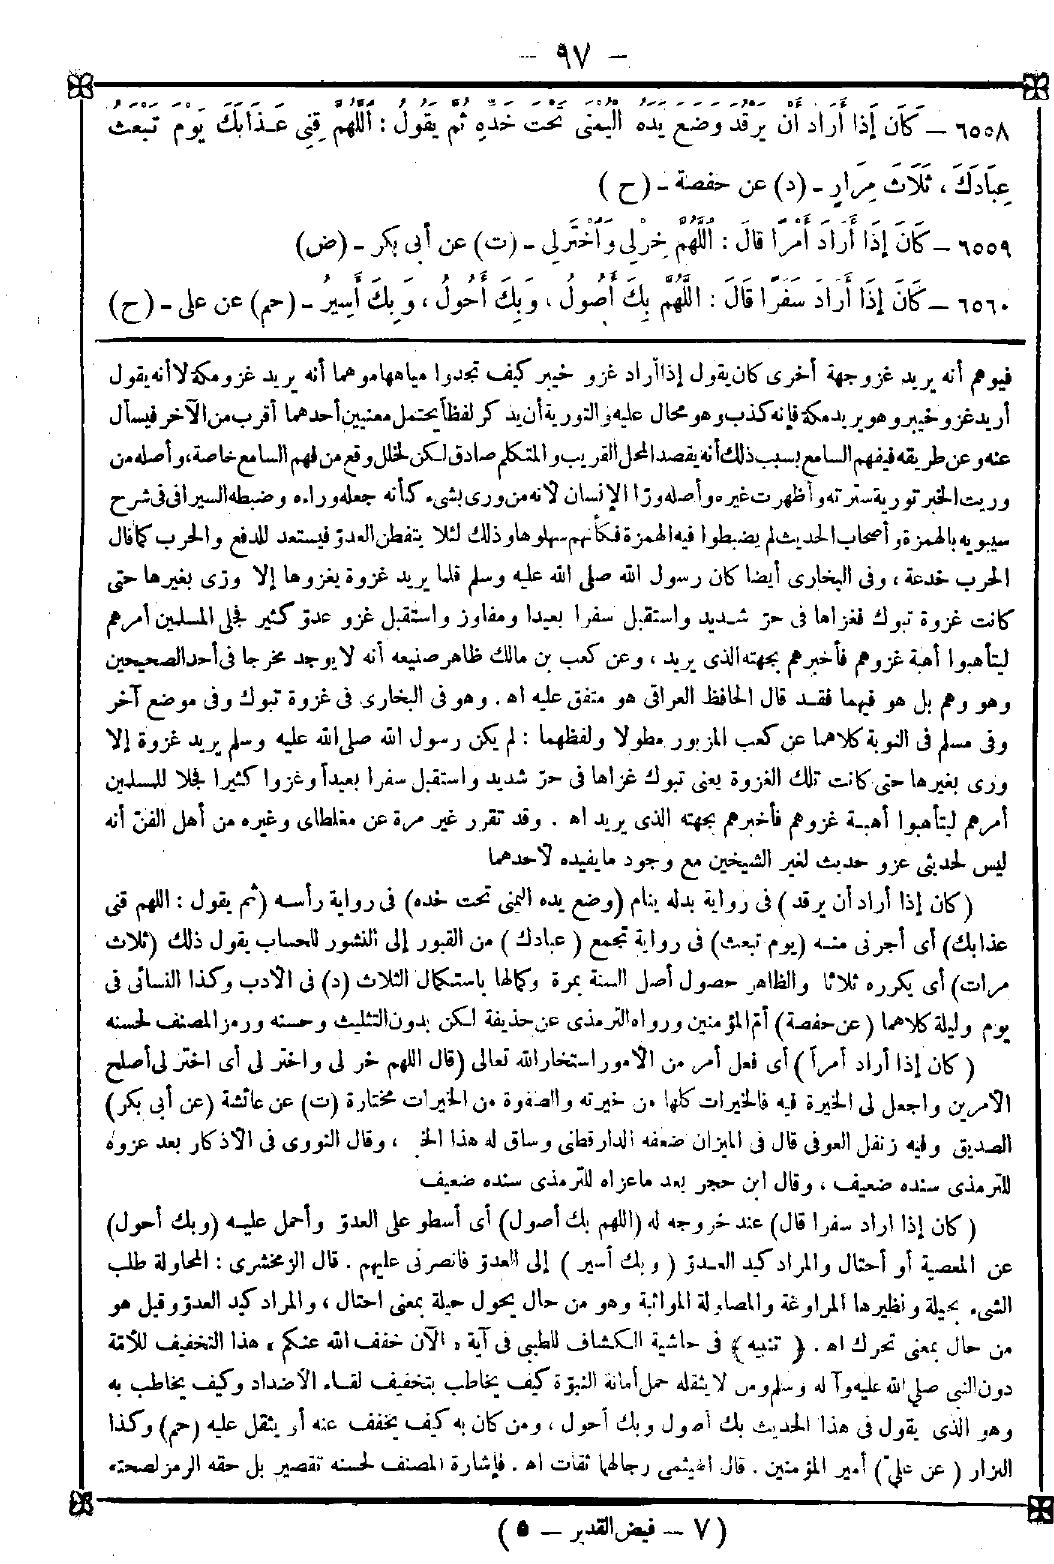 — ٩٧ —
٦٥٥٨ – كَانَ إِذَا أَرَادَ أَنْ يَرْقُدَ وَضَعَ يَدَهُ الْيُمْنَى تَحْتَ خَدِّهِ ثُمَّ يَقُولُ : اللَّهُمَّ قِنِى عَذَابَكَ يَوْمَ تَبْعَثُ
عِبَادَكَ ، ثَلَاثَ مِرَارٍ – (د) عن حفصة – (ح)
٦٥٥٩ – كَانَ إِذَا أَرَادَ أَمْرًا قَالَ : اللَّهُمَّ خِرْلِى وَاخْتَرْلِى – (ت) عن أبى بكر – (ض)
٦٥٦٠ – كَانَ إِذَا أَرَادَ سَفَرًا قَالَ : اللَّهُمَّ بِكَ أَصُولُ ، وَبِكَ أَحُولُ ، وَبِكَ أَسِيرُ – (حم) عن على – (ح)
فيوهم أنه يريد غزو جهة أخرى كان يقول إذا أراد غزو خيبر كيف تجدوا مياهها موهما أنه يريد غزو مكة لا أنه يقول
أريد غزو خيبر وهو يريد مكة فإنه كذب وهو محال عليه والتورية أن يذكر لفظاً يحتمل معنيين أحدهما أقرب من الآخر فيسأل
عنه وعن طريقه فيفهم السامع بسبب ذلك أنه يقصد المحل القريب والمتكلم صادق لكن لخلل وقع من فهم السامع خاصة، وأصله من
وريت الخبر تورية سترته وأظهرت غيره وأصله ورا الإنسان لأنه من ورى بشىء كأنه جعله وراءه وضبطه السيرافى فى شرح
سيبويه بالهمزة وأصحاب الحديث لم يضبطوا فيه الهمزة فكأنهم سهلوها وذلك لئلا يتفطن العدوّ فيستعد للدفع والحرب كما قال
الحرب خدعة ، وفى البخارى أيضا كان رسول الله صلى الله عليه وسلم قلما يريد غزوة يغزوها إلا ورّى بغيرها حتى
كانت غزوة تبوك فغزاها فى حرّ شديد واستقبل سفرا بعيدا ومفاوز واستقبل غزو عدوّ كثير فجلى المسلمين أمرهم
ليتأهبوا أهبة غزوهم فأخبرهم بجهته الذى يريد ، وعن كعب بن مالك ظاهر صنيعه أنه لا يوجد مخرجا فى أحد الصحيحين
وهو وهم بل هو فيهما فقد قال الحافظ العراقى هو متفق عليه اه . وهو فى البخارى فى غزوة تبوك وفى موضع آخر
وفى مسلم فى التوبة كلاهما عن كعب المزبور مطولا ولفظهما : لم يكن رسول الله صلى الله عليه وسلم يريد غزوة إلا
ورى بغيرها حتى كانت تلك الغزوة يعنى تبوك غزاها فى حرّ شديد واستقبل سفرا بعيداً وغزوا كثيرا فجلا للمسلمين
أمرهم ليتأهبوا أهبة غزوهم فأخبرهم بجهته الذى يريد اه . وقد تقرر غير مرة عن مغلطاى وغيره من أهل الفنّ أنه
ليس لحديثى عزو حديث لغير الشيخين مع وجود ما يفيده لأحدهما
(كان إذا أراد أن يرقد) فى رواية بدله ينام (وضع يده اليمنى تحت خده) فى رواية رأسه (ثم يقول : اللهم قنى
عذابك) أى أجرنى منه (يوم تبعث) فى رواية تجمع (عبادك) من القبور إلى النشور للحساب يقول ذلك (ثلاث
مرات) أى يكرره ثلاثا والظاهر حصول أصل السنة بمرة وكمالها باستكمال الثلاث (د) فى الأدب وكذا النسائى فى
يوم وليلة كلاهما (عن حفصة) أمّ المؤمنين ورواه الترمذى عن حذيفة لكن بدون التثليث وحسنه ورمز المصنف لحسنه
(كان إذا أراد أمراً) أى فعل أمر من الأمور استخار الله تعالى (قال اللهم خر لى واختر لى أى اختر لى أصلح
الأمرين واجعل لى الخيرة فيه فالخيرات كلها من خيرته والصفوة من الخيرات مختارة (ت) عن عائشة (عن أبى بكر)
الصديق وفيه زنفل العوفى قال فى الميزان ضعفه الدارقطنى وساق له هذا ، وقال النووى فى الأذكار بعد عزوه
للترمذى سنده ضعيف ، وقال ابن حجر بعد ما عزاه للترمذى سنده ضعيف
(كان إذا اراد سفرا قال) عند خروجه له (اللهم بك أصول) أى أسطو على العدوّ وأحمل عليه (وبك أحول)
عن المعصية أو أحتال والمراد كيد العدوّ (وبك أسير) إلى العدوّ فانصرنى عليهم . قال الزمخشرى : المحاولة طلب
الشىء بحيلة ونظيرها المراوغة والمصاولة المواثبة وهو من حال يحول حيلة بمعنى احتال ، والمراد كيد العدوّ وقيل هو
من حال بمعنى تحرك اه . (تنبيه) فى حاشية الكشاف للطيبى فى آية « الآن خفف الله عنكم » هذا التخفيف للأمّة
دون النبى صلى الله عليه وآله وسلم ومن لا يثقله حمل أمانة النبوّة كيف يخاطب بتخفيف لقاء الأضداد وكيف يخاطب به
وهو الذى يقول فى هذا الحديث بك أصول وبك أحول ، ومن كان به كيف يخفف عنه أو يثقل عليه (حم) وكذا
البزار (عن علىّ) أمير المؤمنين . قال الهيثمى رجالهما ثقات اه . فإشارة المصنف لحسنه تقصير بل حقه الرمز لصحته
(٧ — فيض القدير — ٥)